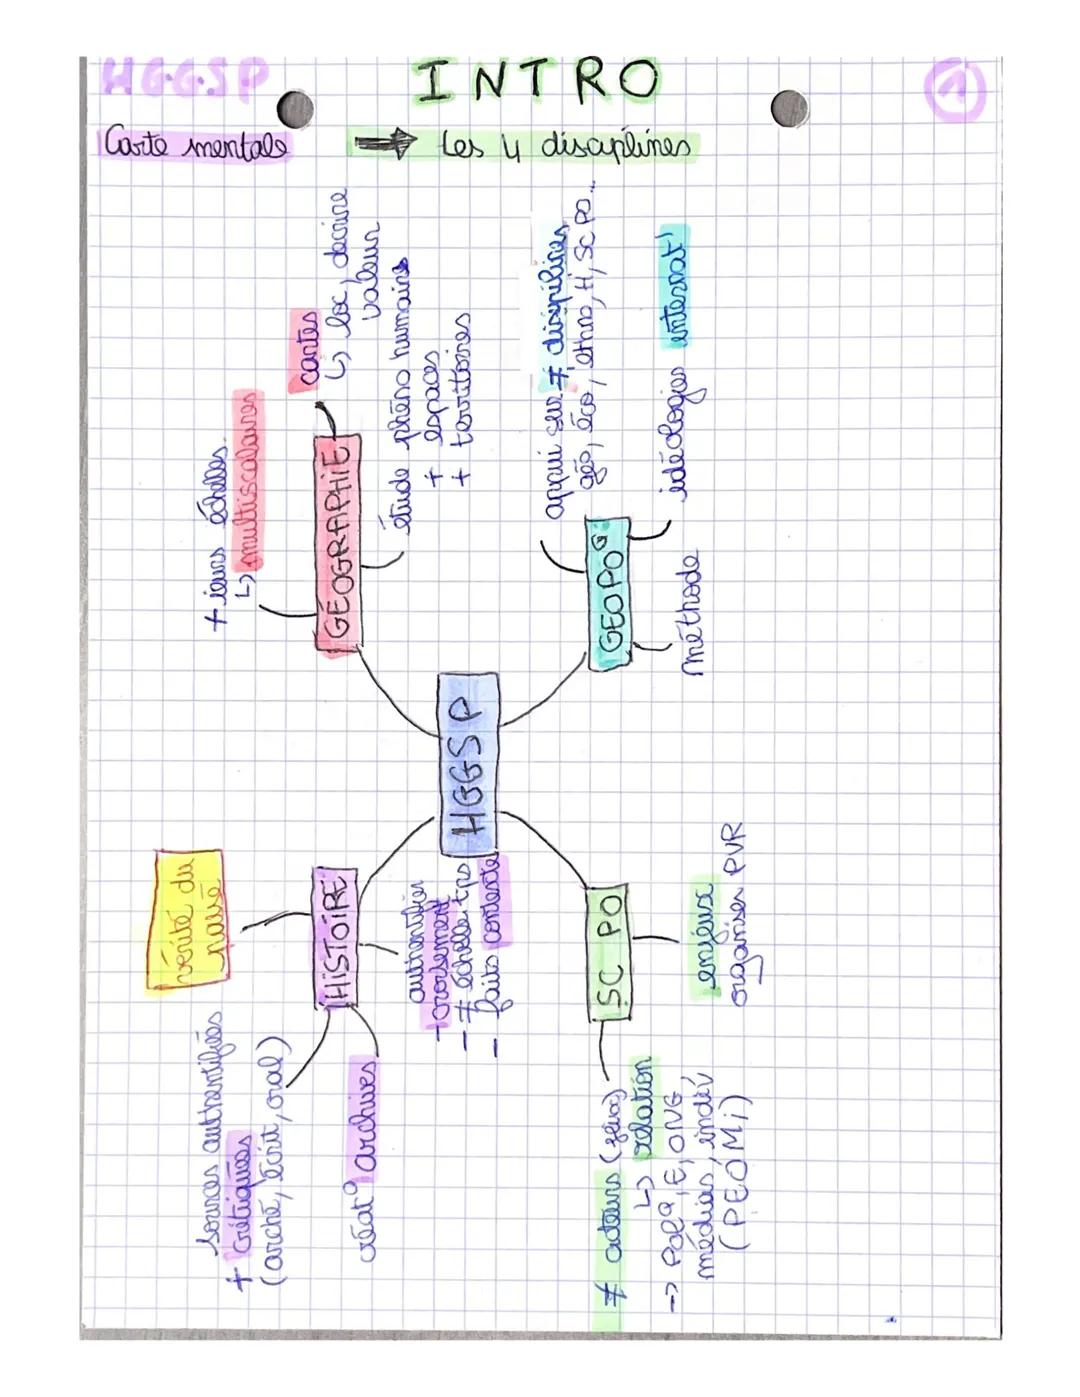 HGGSP
INTRO
1
Carte mentale
→ Les 4 disciplines
HGGSP
HISTOIRE
vérité du
passé
sources authentifiées
+ critiquées
(arché, écrit, oral)
créat° archives
authentifier
- croisement
- ≠ échelle tps
- faits contexte
GÉOGRAPHIE
+ieurs échelles
↳ multiscalaires
cartes
↳ loc, décrire
valeur
étude phéno humains
+ espaces
+ territoires
SC PO
≠ acteurs
↳ relation
→ Pol°, E, ONG,
médias, indiv
(PEOMi)
enjeux
organiser PVR
GEOPO
appui sur ≠ disciplines
géo, éco, ethno, H, SC PO...
méthode
idéologies internat°